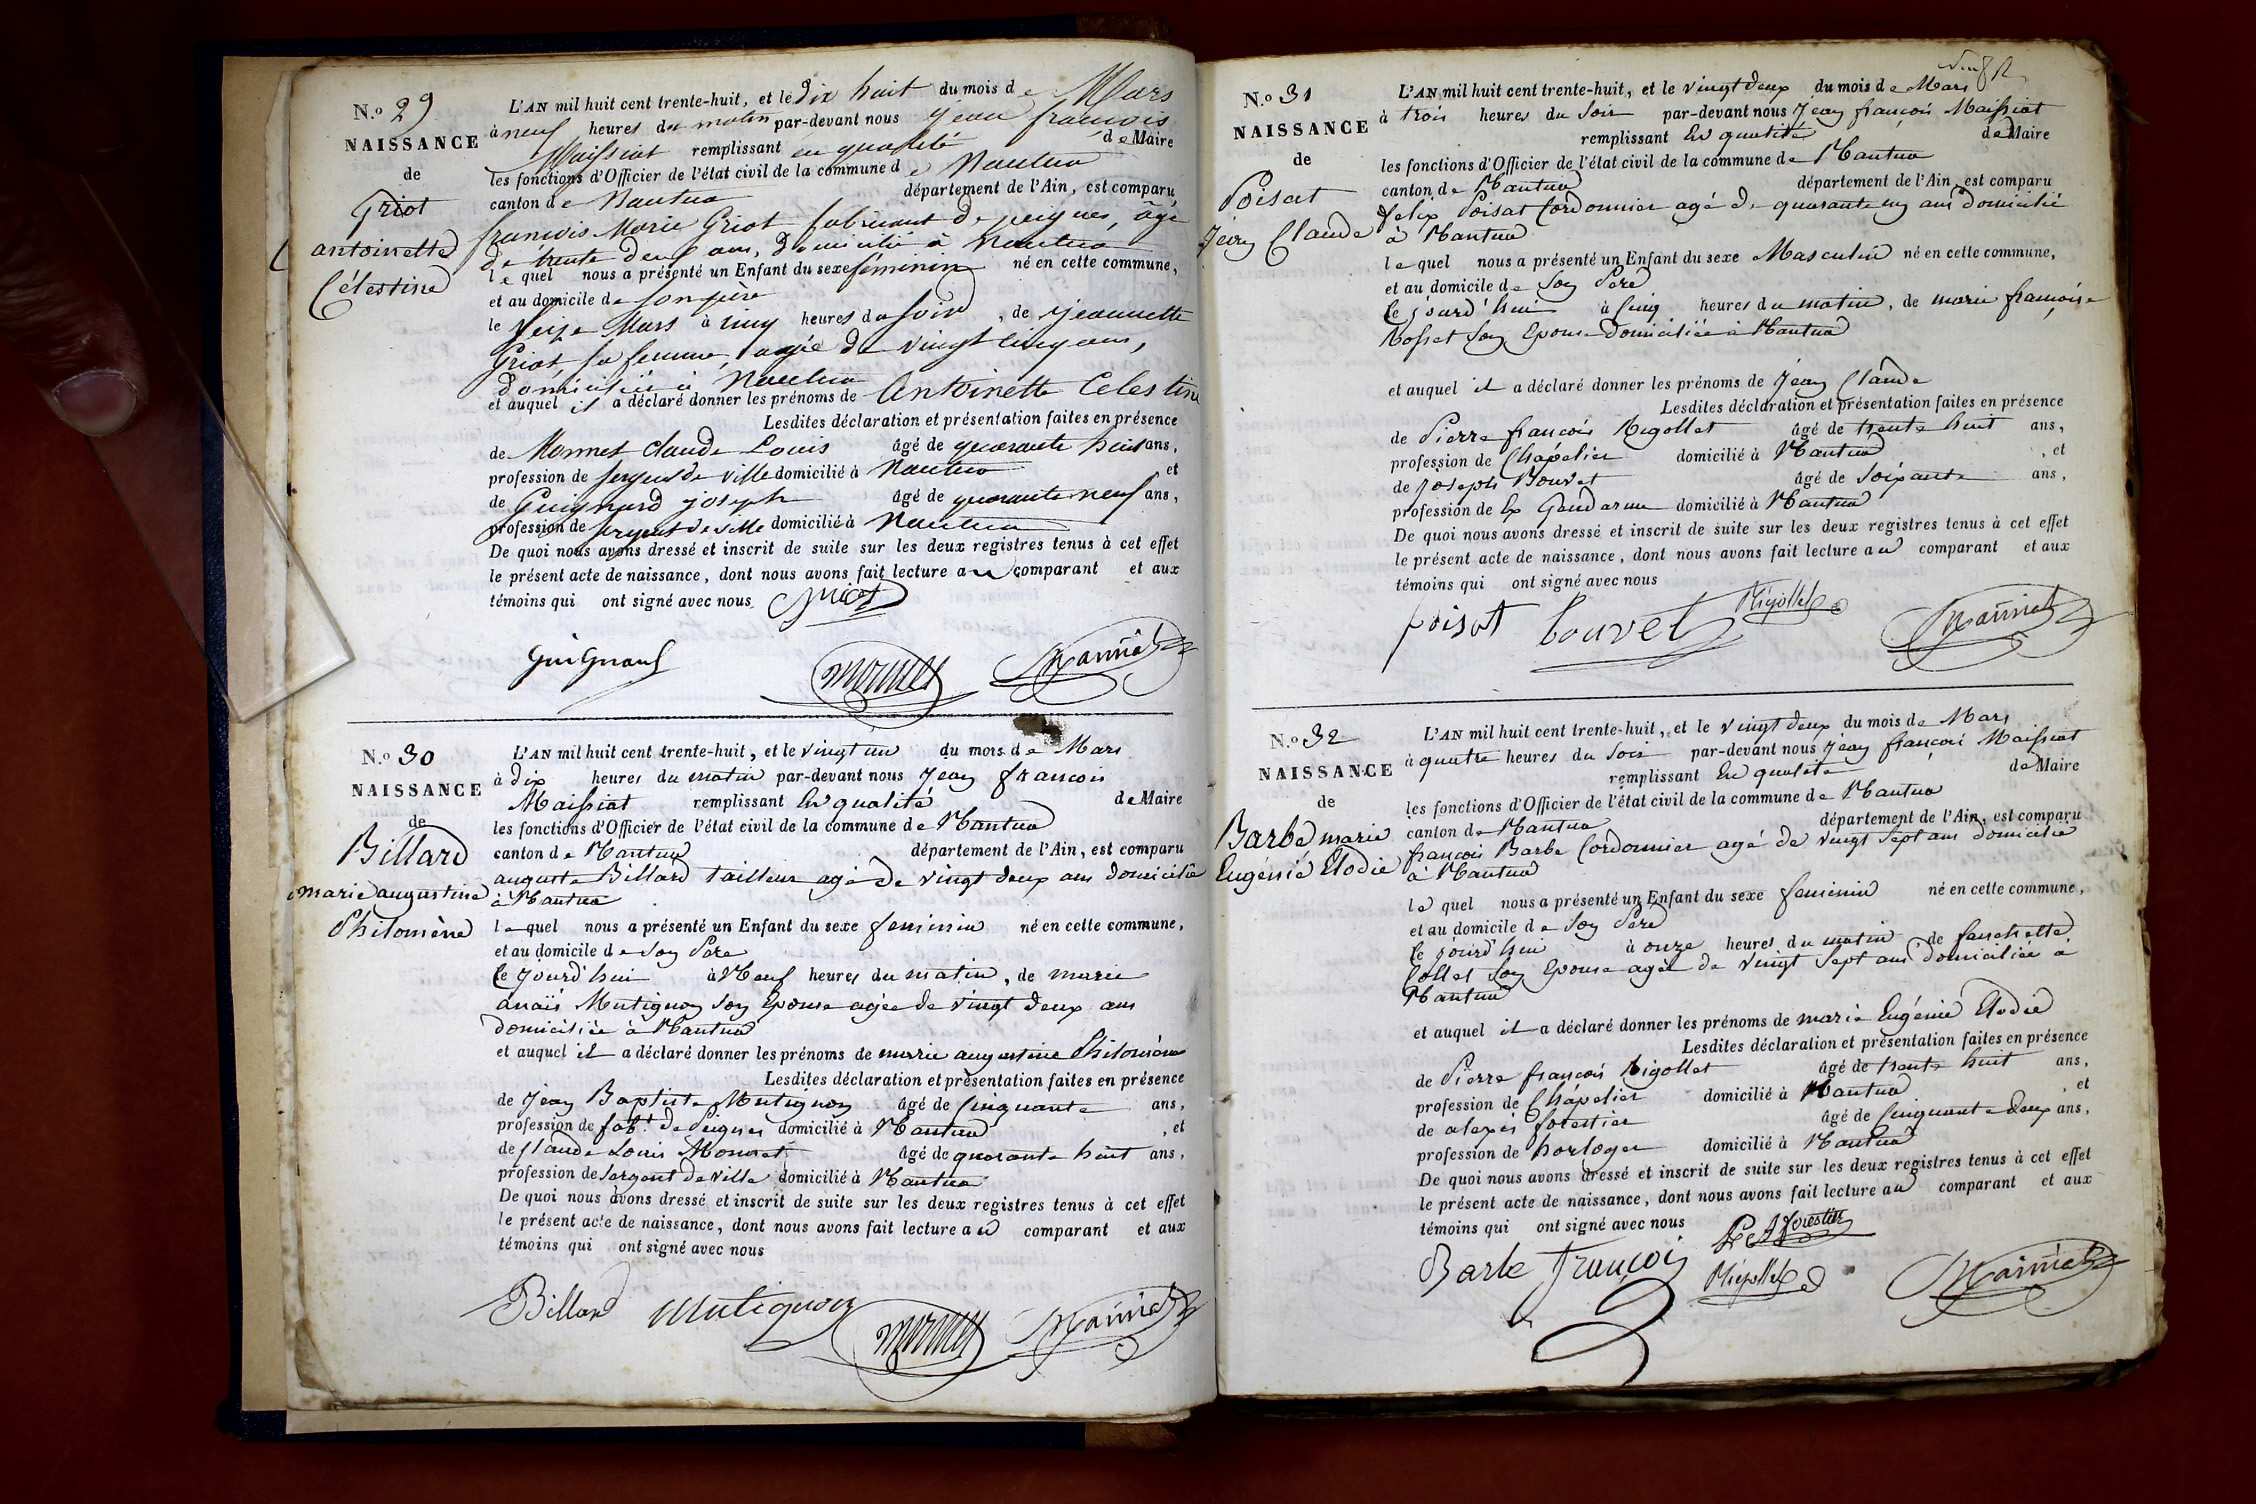 N.o 29
NAISSANCE
de
Griot
antoinette
Célestine
L'AN mil huit cent trente-huit, et le dix huit du mois de Mars
à neuf heures du matin par-devant nous jean françois
Maissiat remplissant en qualité de Maire
les fonctions d'Officier de l'état civil de la commune de Nantua
canton de Nantua département de l'Ain, est comparu
francois Marie Griot fabricant de peignes, âgé
de trente deux ans, domicilié à Nantua
lequel nous a présenté un Enfant du sexe féminin né en cette commune,
et au domicile de son père
le seize Mars à cinq heures du soir, de jeannette
Griot, sa femme, agée de vingt cinq ans,
domiciliée à Nantua
et auquel il a déclaré donner les prénoms de Antoinette Celestine
Lesdites déclaration et présentation faites en présence
de Monnet Claude Louis âgé de quarante huit ans,
profession de sergent de ville domicilié à Nantua, et
de Guignard joseph âgé de quarante neuf ans,
profession de sergent de ville domicilié à Nantua
De quoi nous avons dressé et inscrit de suite sur les deux registres tenus à cet effet
le présent acte de naissance, dont nous avons fait lecture au comparant et aux
témoins qui ont signé avec nous
Griot
Guignard monnet Maissiat
N.o 30
NAISSANCE
de
Billard
marie augustine
Philomène
L'AN mil huit cent trente-huit, et le vingt un du mois de Mars
à dix heures du matin par-devant nous jean francois
Maissiat remplissant En qualité de Maire
les fonctions d'Officier de l'état civil de la commune de Nantua
canton de Nantua département de l'Ain, est comparu
auguste Billard tailleur agé de vingt deux ans domicilié
à Nantua
lequel nous a présenté un Enfant du sexe feminin né en cette commune,
et au domicile de son Pere
Ce jourd'hui à Neuf heures du matin, de marie
anaïs Mutignon son Epouse agée de vingt deux ans
domiciliée à Nantua
et auquel il a déclaré donner les prénoms de marie augustine Philomène
Lesdites déclaration et présentation faites en présence
de jean Baptiste Mutignon âgé de Cinquante ans,
profession de fabt. de Peignes domicilié à Nantua, et
de Claude Louis Monnet âgé de quarante huit ans,
profession de Sergent de ville domicilié à Nantua
De quoi nous avons dressé et inscrit de suite sur les deux registres tenus à cet effet
le présent acte de naissance, dont nous avons fait lecture au comparant et aux
témoins qui ont signé avec nous
Billard Mutignon monnet Maissiat
N.o 31
NAISSANCE
de
Poisat
jean Claude
L'AN mil huit cent trente-huit, et le vingt deux du mois de Mars
à trois heures du Soir par-devant nous jean françois Maissiat
remplissant En qualité de Maire
les fonctions d'Officier de l'état civil de la commune de Nantua
canton de Nantua département de l'Ain, est comparu
felix Poisat Cordonnier agé de quarante un ans domicilié
à Nantua
lequel nous a présenté un Enfant du sexe Masculin né en cette commune,
et au domicile de Son Pere
Ce jourd'hui à Cinq heures du matin, de marie françoise
Rosset Son Epouse domiciliée à Nantua
et auquel il a déclaré donner les prénoms de jean Claude
Lesdites déclaration et présentation faites en présence
de Pierre francois Rigollet âgé de trente huit ans,
profession de Chapelier domicilié à Nantua, et
de joseph Bouvet âgé de Soixante ans,
profession de Ex Gendarme domicilié à Nantua
De quoi nous avons dressé et inscrit de suite sur les deux registres tenus à cet effet
le présent acte de naissance, dont nous avons fait lecture au comparant et aux
témoins qui ont signé avec nous
poisat bouvet Rigollet Maissiat
N.o 32
NAISSANCE
de
Barbe marie
Eugénie Elodie
L'AN mil huit cent trente-huit, et le vingt deux du mois de Mars
à quatre heures du Soir par-devant nous jean françois Maissiat
remplissant En qualité de Maire
les fonctions d'Officier de l'état civil de la commune de Nantua
canton de Nantua département de l'Ain, est comparu
françois Barbe Cordonnier agé de vingt Sept ans domicilié
à Nantua
lequel nous a présenté un Enfant du sexe feminin né en cette commune,
et au domicile de Son Pere
Ce jourd'hui à onze heures du matin de fanchette
Collet Son Epouse agée de vingt Sept ans domiciliée à
Nantua
et auquel il a déclaré donner les prénoms de marie Eugénie Elodie
Lesdites déclaration et présentation faites en présence
de Pierre françois Rigollet âgé de trente huit ans,
profession de Chapelier domicilié à Nantua, et
de alexis forestier âgé de Cinquante deux ans,
profession de horloger domicilié à Nantua
De quoi nous avons dressé et inscrit de suite sur les deux registres tenus à cet effet
le présent acte de naissance, dont nous avons fait lecture au comparant et aux
témoins qui ont signé avec nous
forestier
Barbe françois Rigollet Maissiat